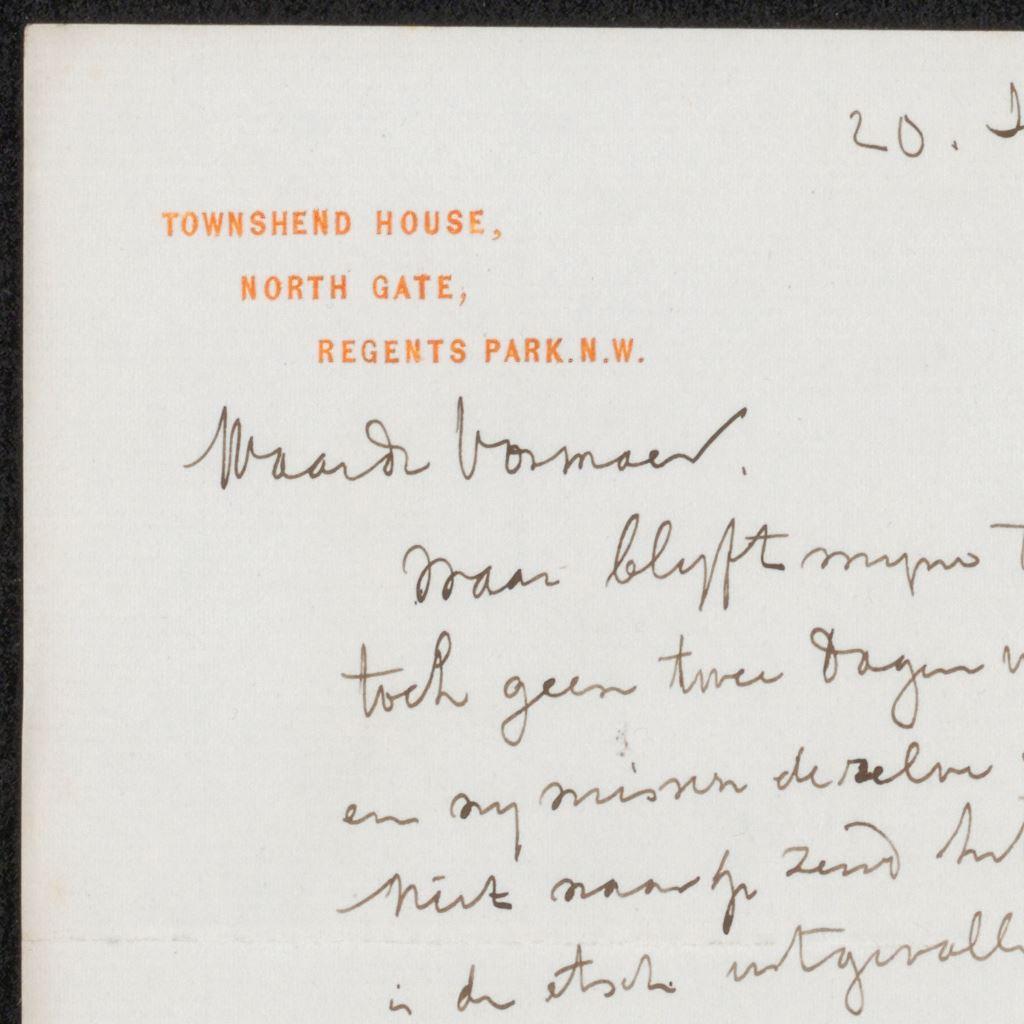 20.
TOWNSHEND HOUSE,
NORTH GATE,
REGENTS PARK.N.W.
Waarde Vosmaer.
waar blijft mijne
toch geen twee Dagen
en wij missen dezelve
Niet waar hij zend het
is de etsch uitgevalle